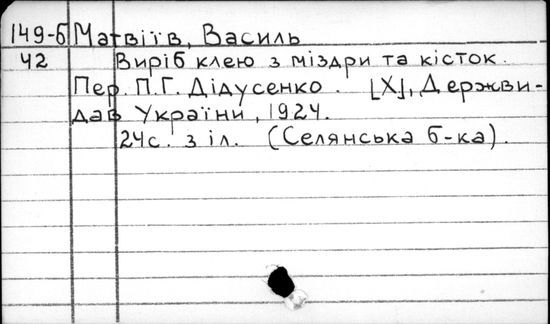 149-б Матвіїв, Василь
42 Виріб клею з міздри та кісток.
Пер. П.Г. Дідусенко. [Х], Держви-
дав України, 1924.
24с. з іл. (Селянська б-ка).